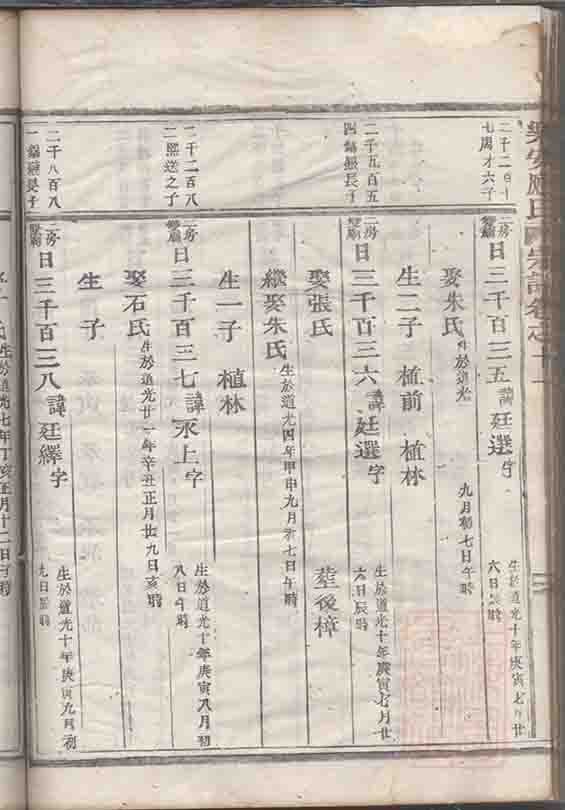 樂安應氏宗譜卷之十一
二千二百十
七周才六子
二房
日三千百三五諱廷選字
生於道光十年庚寅七月廿
六日辰時
娶朱氏
生於道光
九月初七日午時
生二子 植前 植林
二千九百五
四錫振長子
二房
日三千百三六諱廷選字
生於道光十年庚寅七月廿
六日辰時
娶張氏
葬後樟
繼娶朱氏
生於道光四年甲申九月初七日午時
生一子 植林
二千二百八
二熙送之子
二房
日三千百三七諱永上字
生於道光十年庚寅八月初
八日午時
娶石氏
生於道光廿一年辛丑正月廿九日亥時
生 子
二千八百八
一錫
長子
二房
日三千百三八諱廷繹字
生於道光十年庚寅九月初
九日辰時
生於道光七年丁亥正月十二日
時